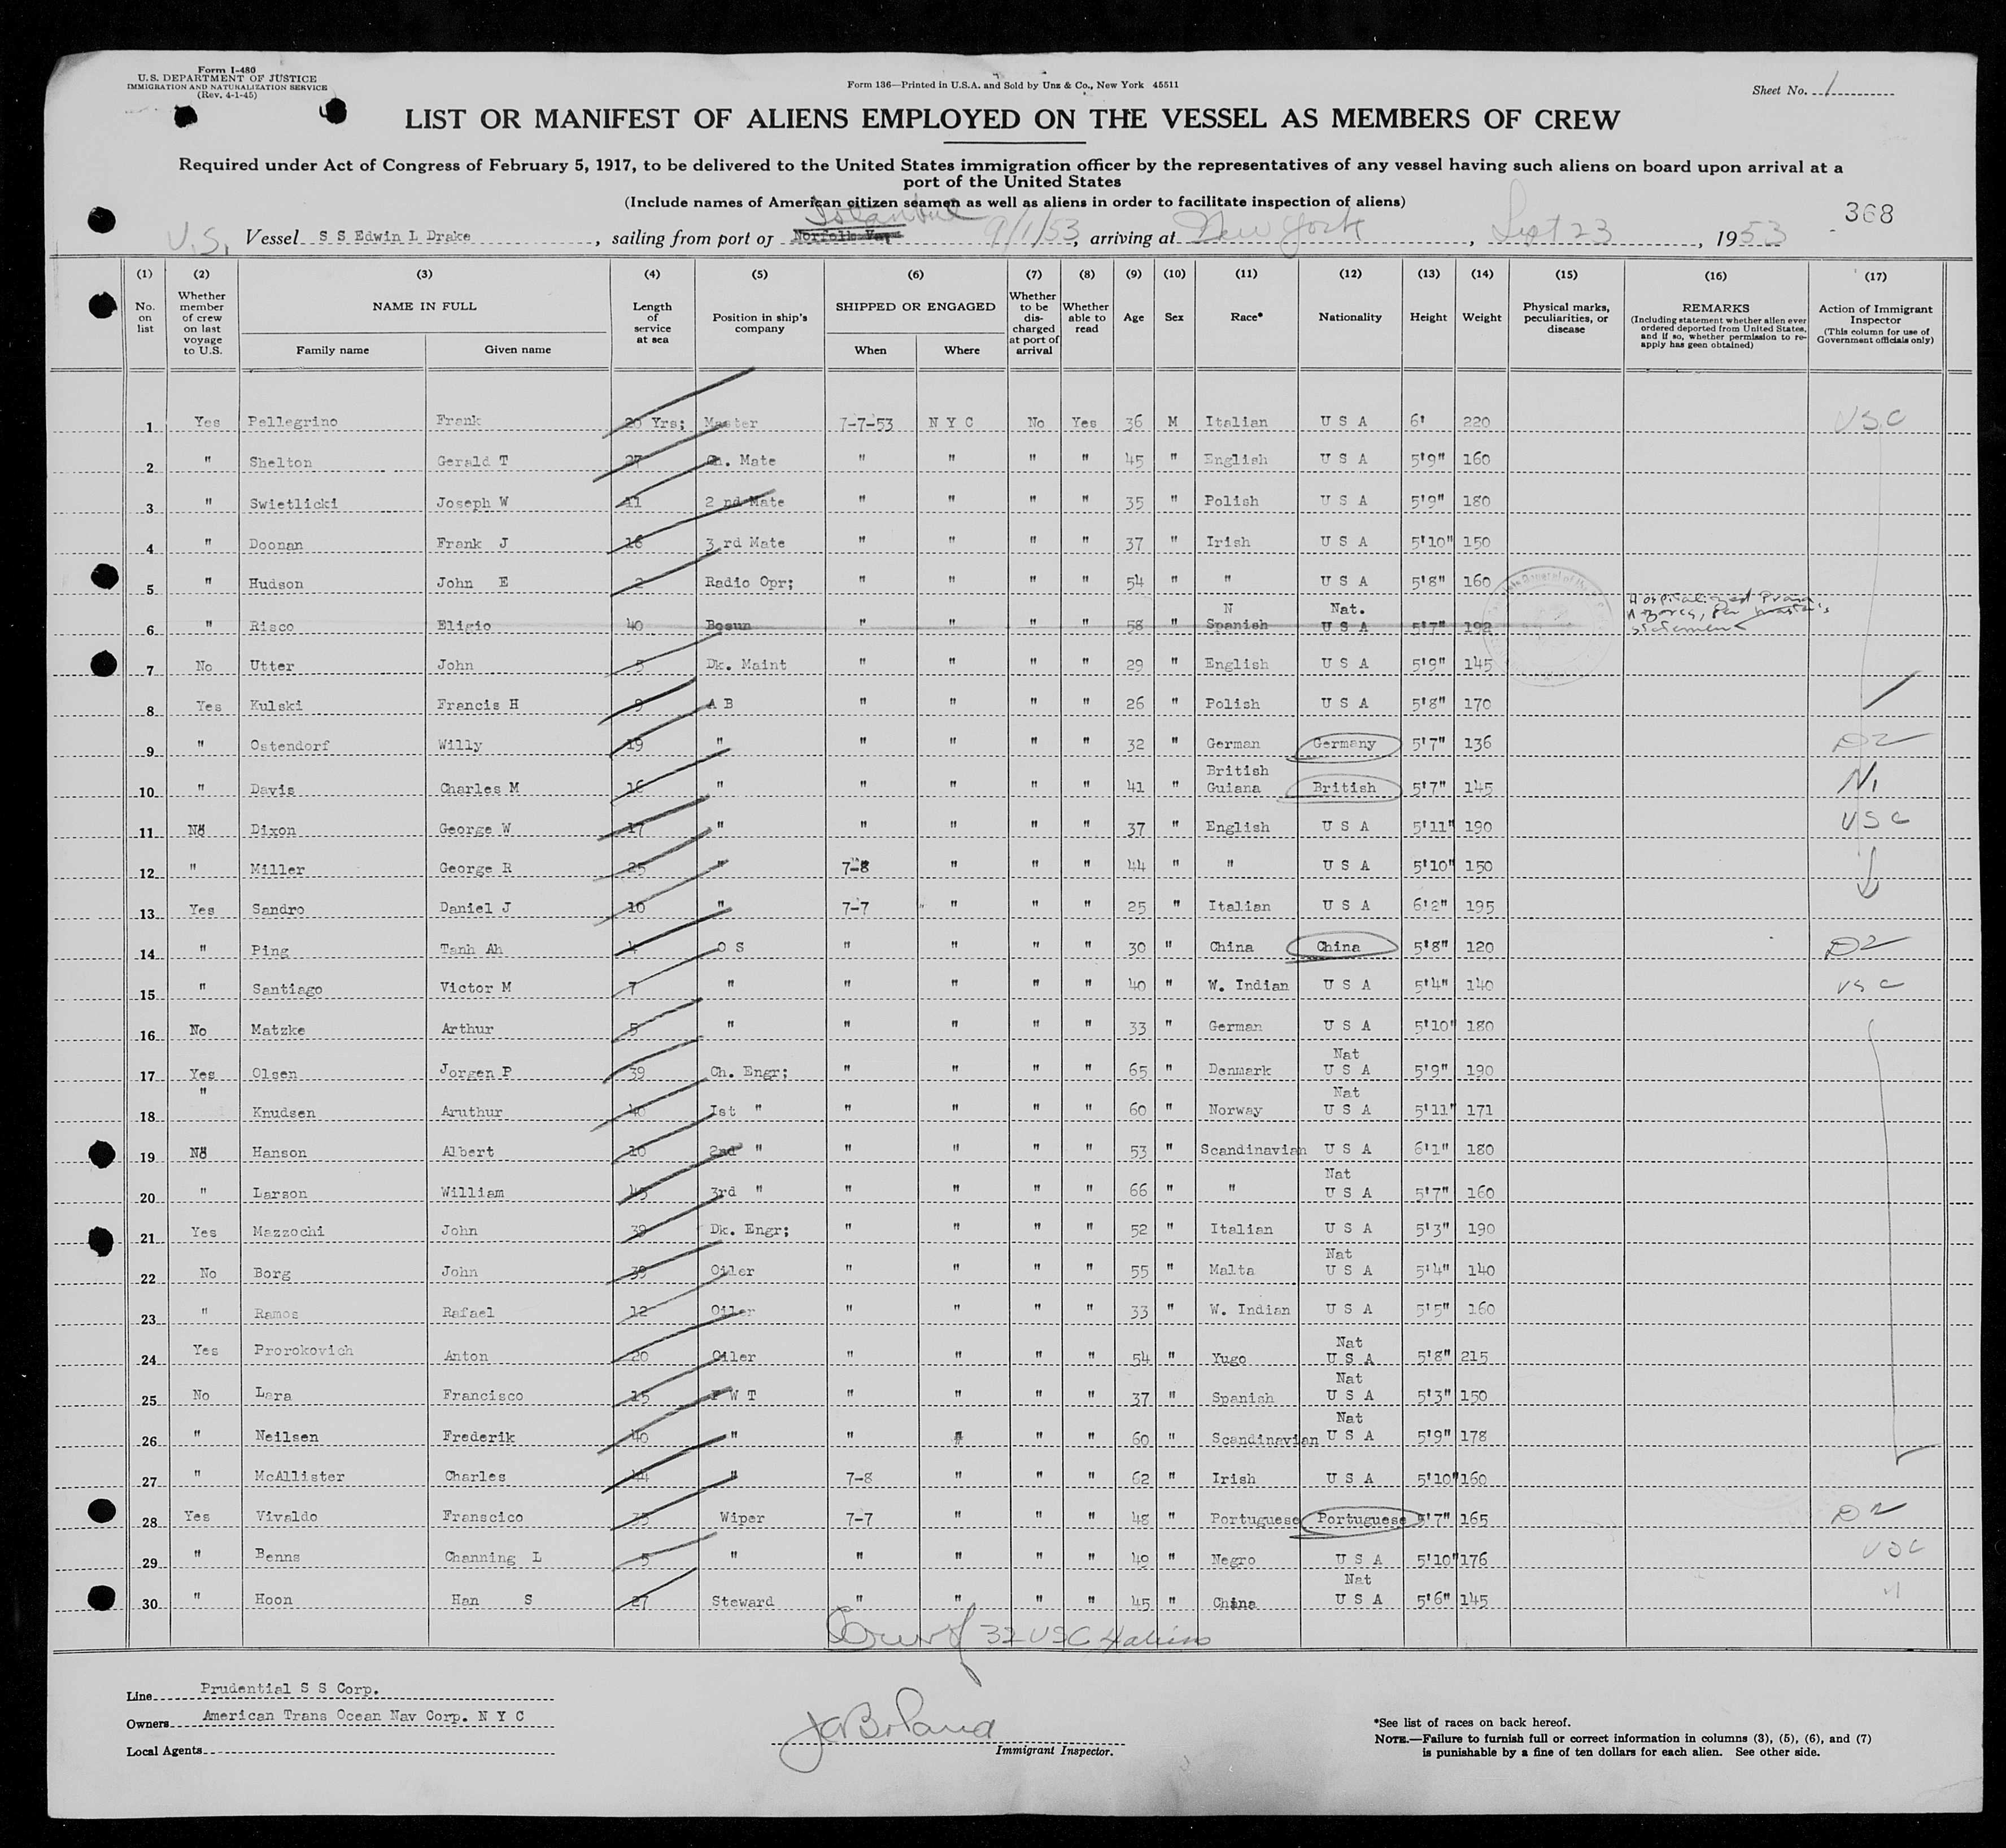 Form I-480
U.S. DEPARTMENT OF JUSTICE
IMMIGRATION AND NATURALIZATION SERVICE
(Rev. 4-1-45)
Form 136—Printed in U.S.A. and Sold by Unz & Co., New York 45511
Sheet No. 1
LIST OR MANIFEST OF ALIENS EMPLOYED ON THE VESSEL AS MEMBERS OF CREW
Required under Act of Congress of February 5, 1917, to be delivered to the United States immigration officer by the representatives of any vessel having such aliens on board upon arrival at a
port of the United States
(Include names of American citizen seamen as well as aliens in order to facilitate inspection of aliens)
368
U.S. Vessel S S Edwin L Drake, sailing from port of Norfolk Va. Istanbul 9/1/53, arriving at New York, Sept 23, 1953
(1) (2) (3) (4) (5) (6) (7) (8) (9) (10) (11) (12) (13) (14) (15) (16) (17)
No. on list
Whether member of crew on last voyage to U.S.
NAME IN FULL
Family name Given name
Length of service at sea
Position in ship's company
SHIPPED OR ENGAGED
When Where
Whether to be discharged at port of arrival
Whether able to read
Age
Sex
Race*
Nationality
Height
Weight
Physical marks, peculiarities, or disease
REMARKS
(Including statement whether alien ever ordered deported from United States, and if so, whether permission to re-apply has geen obtained)
Action of Immigrant Inspector
(This column for use of Government officials only)
1 Yes Pellegrino Frank 20 Yrs; Master 7-7-53 N Y C No Yes 36 M Italian U S A 6' 220 USC
2 " Shelton Gerald T 27 Ch. Mate " " " " 45 " English U S A 5'9" 160
3 " Swietlicki Joseph W 11 2 nd Mate " " " " 35 " Polish U S A 5'9" 180
4 " Doonan Frank J 16 3 rd Mate " " " " 37 " Irish U S A 5'10" 150
5 " Hudson John E 2 Radio Opr; " " " " 54 " " U S A 5'8" 160
6 " Risco Eligio 40 Bosun " " " " 58 " N Spanish Nat. U S A 5'7" 192 Hospitalized Azores, per master's statement
7 No Utter John 5 Dk. Maint " " " " 29 " English U S A 5'9" 145
8 Yes Kulski Francis H 9 A B " " " " 26 " Polish U S A 5'8" 170
9 " Ostendorf Willy 19 " " " " " 32 " German Germany 5'7" 136 D2
10 " Davis Charles M 16 " " " " " 41 " British Guiana British 5'7" 145 N1
11 No Dixon George W 17 " " " " " 37 " English U S A 5'11" 190 USC
12 " Miller George R 25 " 7-8 " " " 44 " " U S A 5'10" 150
13 Yes Sandro Daniel J 10 " 7-7 " " " 25 " Italian U S A 6'2" 195
14 " Ping Tanh Ah 4 O S " " " " 30 " China China 5'8" 120 D2
15 " Santiago Victor M 7 " " " " " 40 " W. Indian U S A 5'4" 140 USC
16 No Matzke Arthur 5 " " " " " 33 " German U S A 5'10" 180
17 Yes Olsen Jorgen P 39 Ch. Engr; " " " " 65 " Denmark Nat U S A 5'9" 190
18 " Knudsen Aruthur 40 Ist " " " " " 60 " Norway Nat U S A 5'11" 171
19 No Hanson Albert 10 2nd " " " " " 53 " Scandinavian U S A 6'1" 180
20 " Larson William 45 3rd " " " " " 66 " " Nat U S A 5'7" 160
21 Yes Mazzochi John 39 Dk. Engr; " " " " 52 " Italian U S A 5'3" 190
22 No Borg John 39 Oiler " " " " 55 " Malta Nat U S A 5'4" 140
23 " Ramos Rafael 12 Oiler " " " " 33 " W. Indian U S A 5'5" 160
24 Yes Prorokovich Anton 20 Oiler " " " " 54 " Yugo Nat U S A 5'8" 215
25 No Lara Francisco 15 F W T " " " " 37 " Spanish Nat U S A 5'3" 150
26 " Neilsen Frederik 40 " " " " " 60 " Scandinavian Nat U S A 5'9" 178
27 " McAllister Charles 44 " 7-8 " " " 62 " Irish U S A 5'10" 160
28 Yes Vivaldo Franscico 33 Wiper 7-7 " " " 48 " Portuguese Portuguese 5'7" 165 D2
29 " Benns Channing L 5 " " " " " 49 " Negro U S A 5'10" 176 USC
30 " Hoon Han S 27 Steward " " " " 45 " China Nat U S A 5'6" 145 "
32 USC 4 aliens
Line Prudential S S Corp.
Owners American Trans Ocean Nav Corp. N Y C
Local Agents
Immigrant Inspector.
*See list of races on back hereof.
NOTE.—Failure to furnish full or correct information in columns (3), (5), (6), and (7)
is punishable by a fine of ten dollars for each alien. See other side.